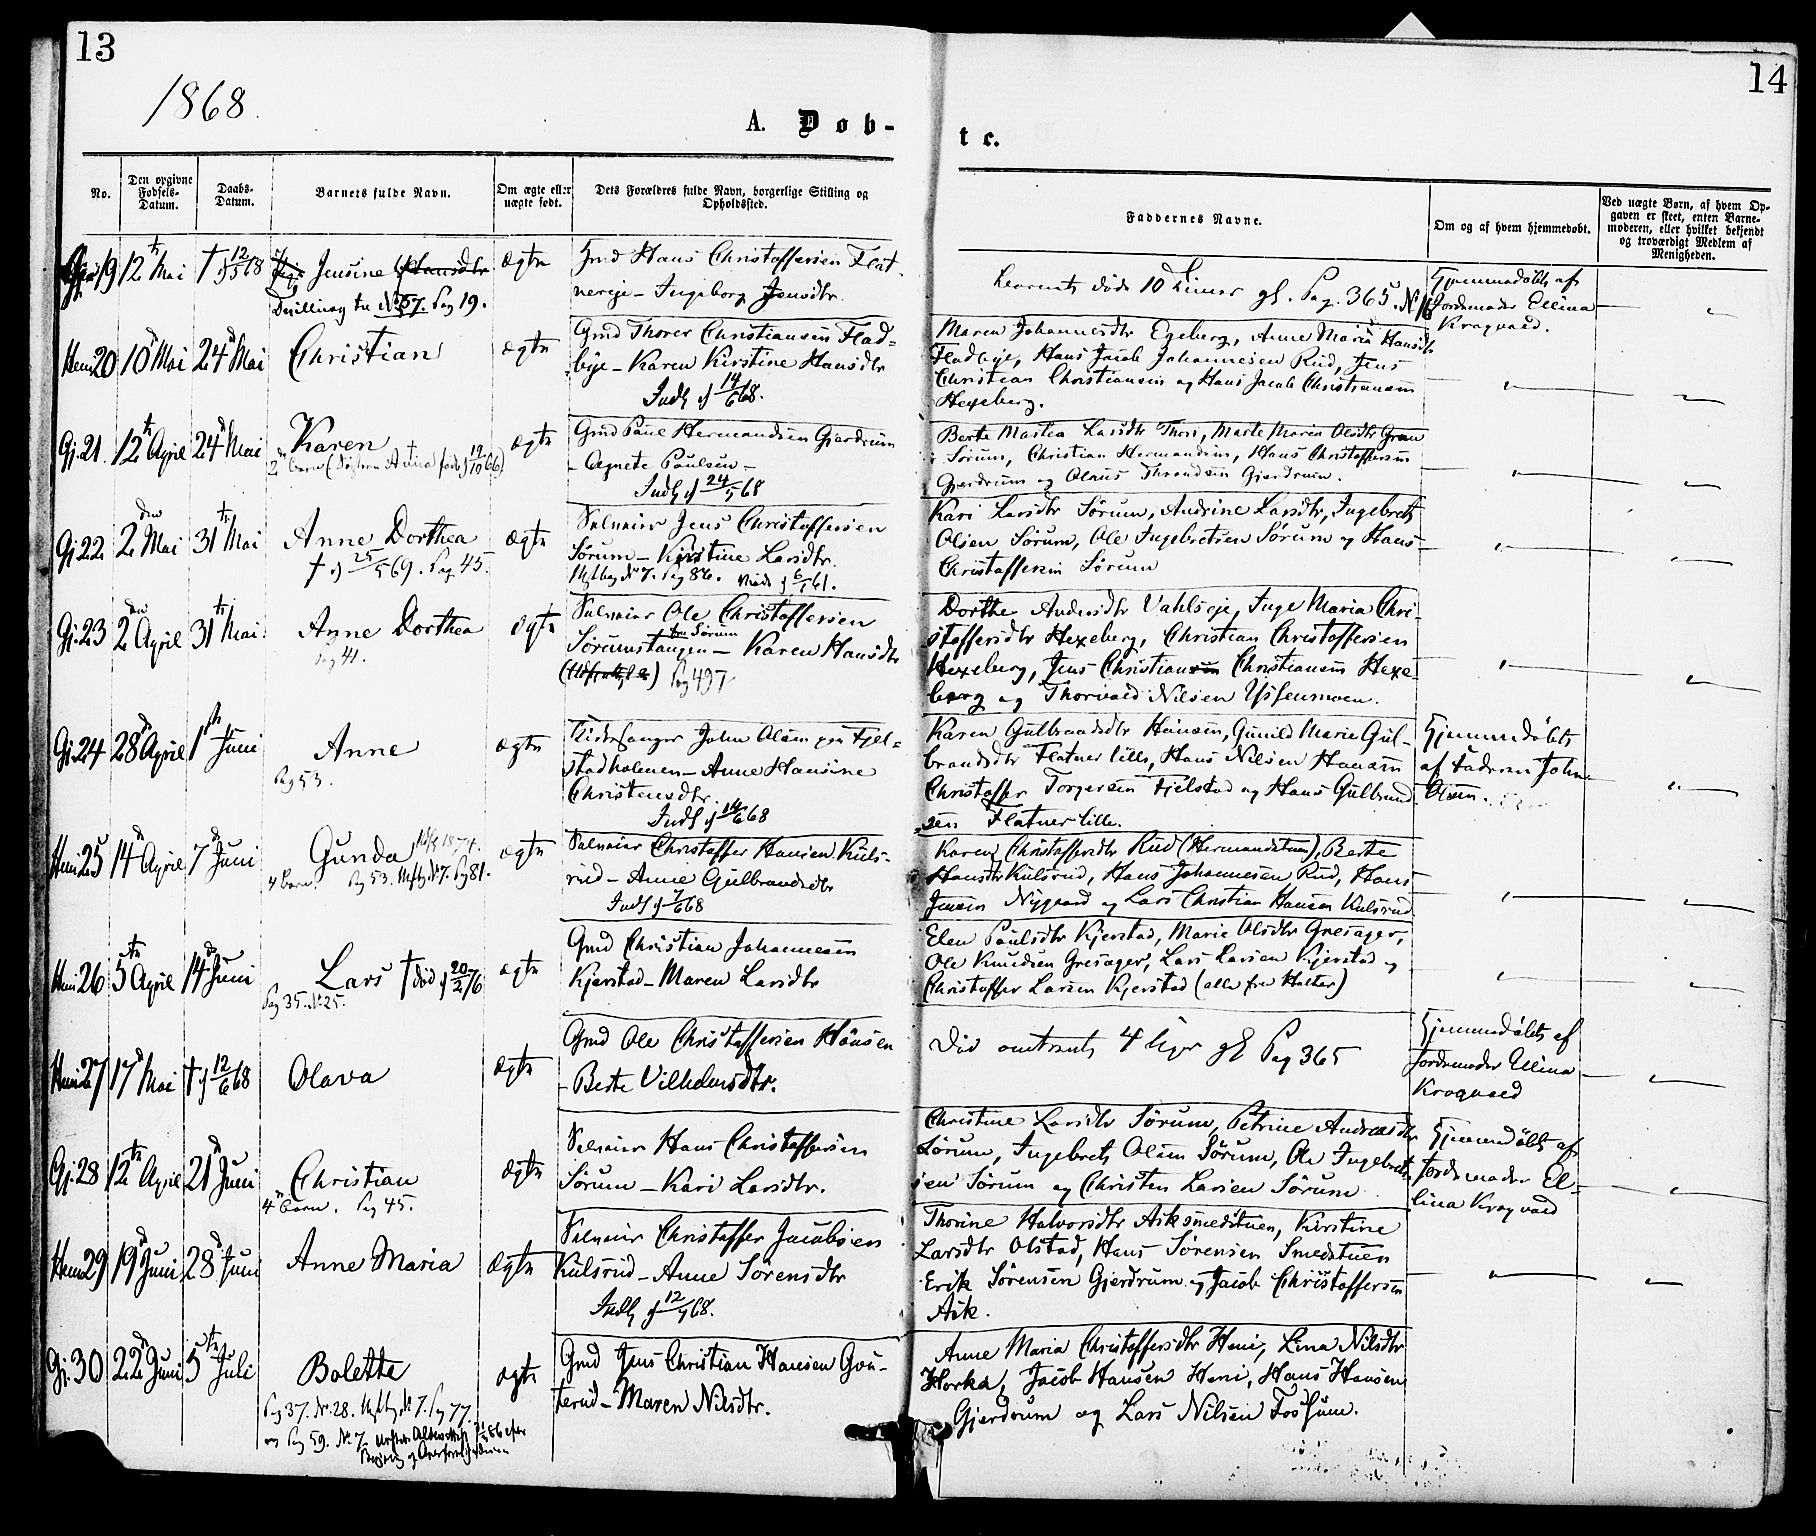 13
14
1868.
A. Døb-
te.
No.
Den opgivne Fødsels-Datum.
Daabs-Datum.
Barnets fulde Navn.
Om ægte eller uægte født.
Dets Forældres fulde Navn, borgerlige Stilling og Opholdssted.
Faddernes Navne.
Om og af hvem hjemmedøbt.
Ved uægte Børn, af hvem Opgaven er skeet, enten Barnemoderen, eller hvilket bekjendt og troværdigt Medlem af Menigheden.
19 12te Mai † 12/5 68 Jensine ægte
Gmd Hans Christoffersen Flat-
nereje - Ingeborg Jensdtr.
Tvilling til No 57. Pag 19.
Barnets døde 10 Timer gl. Pag. 365.
Hjemmedøbt af
Jordemoder Ellina
Kragvold.
Heni 20 10d Mai 24d Mai Christian ægte
Gmd Thorer Christiansen Flad-
bye - Karen Kirstine Hansdtr
Indl 14/6 68.
Maren Johannesdtr Egeberg, Anne Maria Hansdtr
Fladbye, Hans Jacob Johannesen Rud, Jens
Christian Christiansen og Hans Jacob Christiansen
Hexeberg.
Gj. 21. 12te April 24d Mai Karen ægte
2det Barn (Søsteren Antina født 19/10 66)
Gmd Paul Hermandsen Gjerdrum
- Agnete Paulsen -
Indl 24/5 68
Berte Mathea Larsdtr Thori, Marte Maria Olsdtr Gran
i Sørum, Christian Hermandsen, Hans Christoffersen
Gjerdrum og Olaus Throndsen Gjerdrum.
Gj 22 2den Mai 31te Mai Anne Dorthea ægte
† 25/5 69. Pag 45.
Selveier Jens Christoffersen
Sørum - Kirstine Larsdtr.
Utflbog No 7. Pag 86. viede 6/1 61.
Kari Larsdtr Sørum, Andrine Larsdtr, Ingebret
Olsen Sørum, Ole Ingebretsen Sørum og Hans
Christoffersen Sørum
Gj. 23 2den April 31te Mai Anne Dorthea ægte
Pag 41.
Selveier Ole Christoffersen
Sørumstangen - Karen Hansdtr
Pag 497
Dorthe Andersdtr Vahlseje, Inge Maria Chri-
stoffersdtr Hexeberg, Christian Christoffersen
Hexeberg, Jens Christiansen Christiansen Hexe-
berg og Thorvald Nilsen Yssenmoen.
Gj. 24 28d April 1ste Juni Anne ægte
Pag 53.
Kirkesanger John Olsen paa Fjel-
stadholmen - Anne Hansine
Christensdtr.
Indl 14/6 68
Karen Gulbrandsdtr Hønsen, Gunild Marie Gul-
brandsdtr Flatner lille, Hans Nilsen Hønsen
Christoffer Torgersen Fjelstad og Hans Gulbrand
sen Flatner lille.
Hjemmedøbt
af Faderen John
Olsen.
Heni 25 14d April 7d Juni Gunda ægte
4 Barn. Pag 53. Utflb. No 7. Pag 81.
Selveier Christoffer Hansen Kuls-
rud - Anne Gulbrandsdtr
Indl 7/6 68
Karen Christoffersdtr Rud (Hermandstuen), Berte
Hansdtr Kulsrud, Hans Johannesen Rud, Hans
Jensen Nygaard og Lars Christian Hansen Kulsrud
Heni 26 5te April 14d Juni Lars † død 20/2 76 ægte
Pag 35. No 25.
Gmd Christian Johannesen
Kjerstad - Maren Larsdtr
Elen Paulsdtr Kjerstad, Marie Olsdtr Gresager,
Ole Knudsen Gresager, Lars Larsen Kjerstad og
Christoffer Larsen Kjerstad (alle fra Holter)
Heni 27 17d Mai † 12/6 68 Olava ægte
Gmd Ole Christoffersen Hønsen
- Berte Vilhelmsdtr.
Død omtrent 4 Uger gl Pag 365
Hjemmedøbt af
Jordemoder Ellina
Kragvold
Gj. 28 12te April 21d Juni Christian ægte
4 Barn. Pag 45.
Selveier Hans Christoffersen
Sørum - Kari Larsdtr.
Christine Larsdtr Sørum, Petrine Andreasdtr
Sørum, Ingebret Olsen Sørum, Ole Ingebret-
sen Sørum og Christen Larsen Sørum
Hjemmedøbt af
Jordemoder El-
lina Kragvold
Heni 29 19d Juni 28d Juni Anne Maria ægte
Selveier Christoffer Jacobsen
Kulsrud - Anne Sørensdtr
Indl 12/9 68.
Thorine Halvorsdtr Asksmedstuen, Kirstine
Larsdtr Olstad, Hans Sørensen Smedstuen
Erik Sørensen Gjerdrum og Jacob Christoffersen
Ask.
Gj. 30 22d Juni 5te Juli Bolette ægte
Pag 37. No 28. Utflb. No 7. Pag 77.
og Pag 59. No 7.
Gmd Jens Christian Hansen Gou-
terud - Maren Nilsdtr.
Anne Maria Christoffersdtr Heni, Lina Nilsdtr
Horka, Jacob Hansen Heni, Hans Hansen
Gjerdrum og Lars Nilsen Fossum.